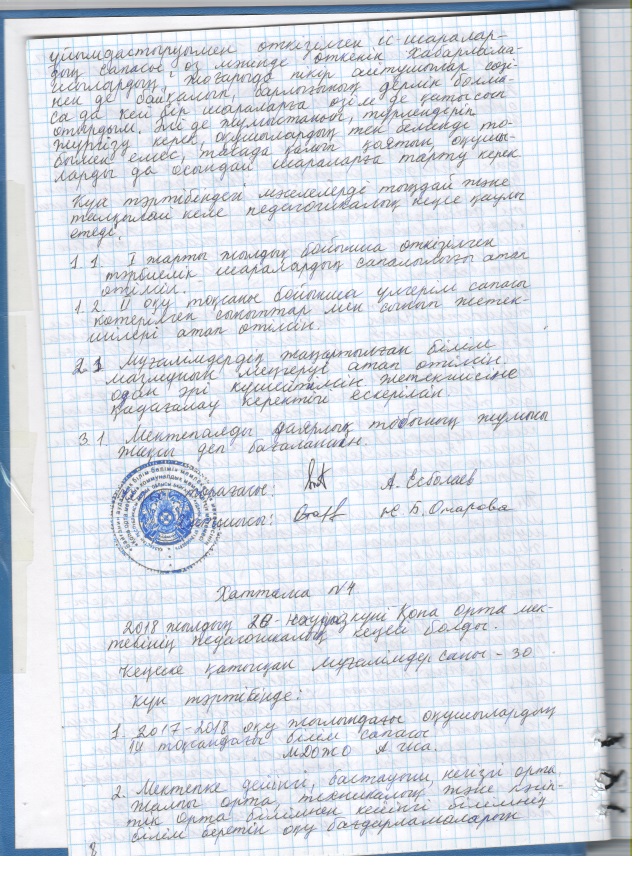 ұйымдастыруымен өткізілген іс-шаралар-
дың сапасы өз мәнінде өткенін хабарлама-
шылардың, жоғарыда пікір айтушылар сөзі-
нен де байқалып, барлығының дерлік болма-
са да кей бір шараларға өзім де қатысып
отырдым. Әлі де жұмыстанып, түрлендіріп
жүргізу керек, оқушылардың тек белсенді то-
бымен емес, тасада қалып қоятын оқушы-
ларды да осындай шараларға тарту керек.
Күн тәртібіндегі мәселелерді тыңдай және
талқылай келе педагогикалық кеңес қаулы
етеді.
1.1. I жарты жылдық бойынша өткізілген
тәрбиелік шаралардың сапалылығы атап
өтілсін.
1.2. II оқу тоқсаны бойынша үлгерім сапасы
көтерілген сыныптар мен сынып жетек-
шілері атап өтілсін.
2.1 Мұғалімдердің жаңартылған білім
мазмұнын меңгеруі атап өтілсін.
одан әрі күшейтілген жетекшісіне
қадағалау керектігі ескерілсін.
3.1. Мектепалды даярлық тобының жұмысы
жақсы деп бағалансын.
төрағасы: А. Есболаев
хатшысы: К Б. Омарова
Хаттама №4
2018 жылдың 20-наурыз күні Қопа орта мек-
тебінің педагогикалық кеңесі болды.
Кеңеске қатысқан мұғалімдер саны - 30
Күн тәртібінде:
1. 2017-2018 оқу жылындағы оқушылардың
III тоқсандағы білім сапасы
МДОЖО А
2. Мектепке дейінгі, бастауыш, негізгі орта,
жалпы орта, техникалық және кәсіп-
тік орта білімнен кейінгі білімнің
білім беретін оқу бағдарламаларын
8